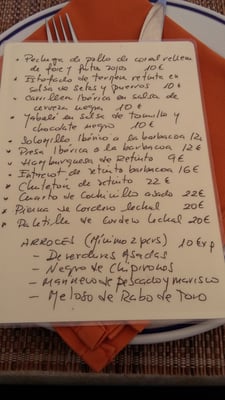 * Pechuga de pollo de corral rellena
de foie y fruta rojos 10€
* Estofado de ternera retinta en
salsa de setas y puerros 10€
* Carrillera Ibérica en salsa de
cerveza negra 10€
* Jabalí en salsa de tomillo y
chocolate negro 10€
* Solomillo Ibérico a la barbacoa 12€
* Presa Ibérica a la barbacoa 12€
* Hamburguesa de Retinto 9€
* Entrecot de retinto barbacoa 16€
* Chuletón de retinto 22€
* Cuarto de Cochinillo asado 22€
* Pierna de Cordero lechal 20€
* Paletilla de Cordero lechal 20€
ARROCES (Mínimo 2 pers) 10€ x p
- De verduras Asadas
- Negro de Chipirones
- Marinero de Pescado y marisco
- Meloso de Rabo de Toro